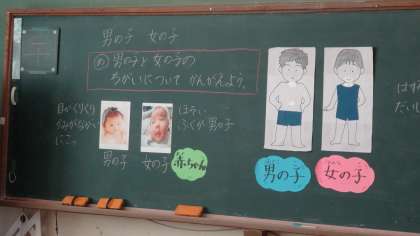 男の子 女の子
め 男の子と 女の子の
ちがいについて かんがえよう。
目がくりくり
かみがながい
にこっ
ほそい
ふくが 男の子
男の子
女の子
赤ちゃん
男の子
女の子